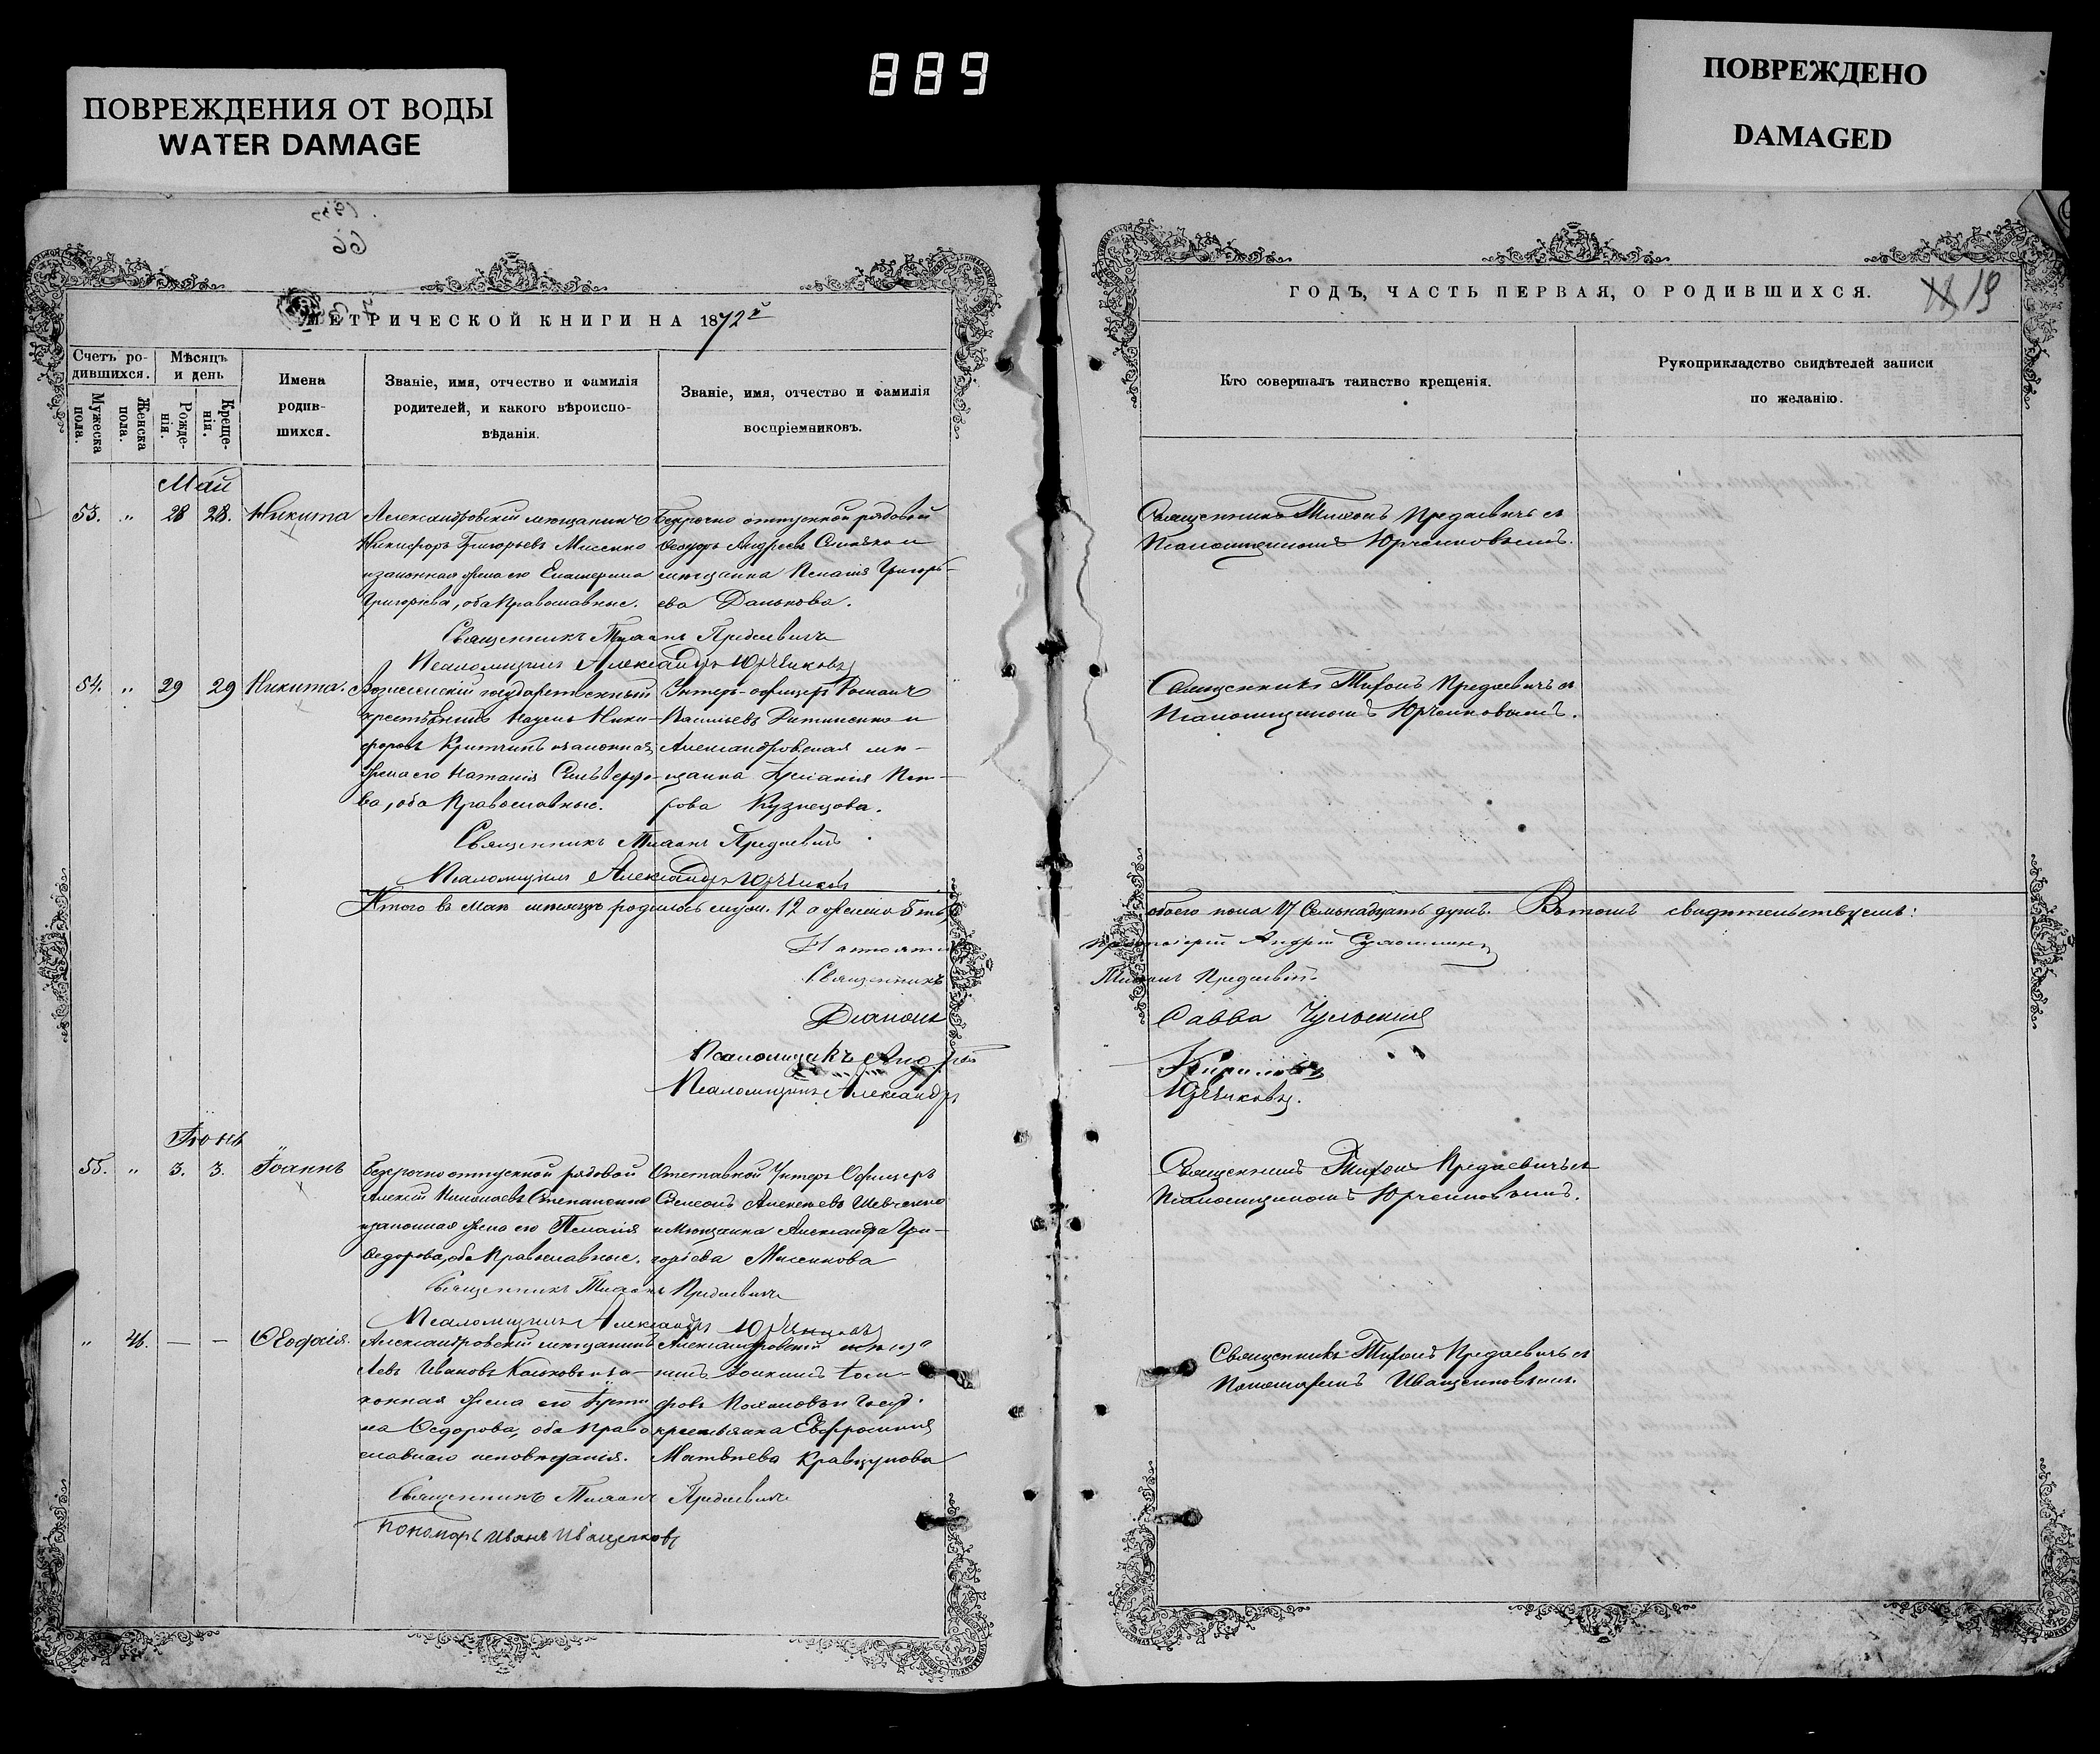 889
ПОВРЕЖДЕНИЯ ОТ ВОДЫ
WATER DAMAGE
ПОВРЕЖДЕНО
DAMAGED
МЕТРИЧЕСКОЙ КНИГИ НА 1872й
Счетъ ро-
дившихся.
Мужеска
пола.
Женска
пола.
Мѣсяцъ
и день
Рожде-
нія.
Креще-
нія.
Имена
родив-
шихся.
Званіе, имя, отчество и фамилія
родителей, и какого вѣроиспо-
вѣданія.
Званіе, имя, отчество и фамилія
воспріемниковъ.
Май
53. „ 28 28. Никита
Александровскій мещанинъ
Никифоръ Григорьевъ Мисенко
и законная жена его Екатерина
Григоріева, оба Православные.
Безсрочно отпускной рядовой
Ѳедоръ Андреевъ и
мещанка Пелагія Григорь-
ева Данькова.
Священникъ Тихонъ Предаевичъ
Псаломщикъ Александръ Юрченковъ
54. „ 29 29 Никита.
государственный
крестьянинъ Ники-
форовъ и законная
жена его Наталія
ва, оба Православные.
Унтеръ-офицеръ Романъ
Васильевъ и
Александровская ме-
щанка Пет-
рова Кузнецова.
Священникъ Тихонъ Предаевичъ
Псаломщикъ Александръ Юрченковъ
Итого въ Маѣ мѣсяцѣ родилось муж. 12 а женска 5ть
Священникъ
Діаконъ
Псаломщикъ Андрей
Псаломщикъ Александръ
Іюнь
55. „ 3. 3. Іоаннъ
Безсрочноотпускной рядовой
Алексій Николаевъ Степаненко
и законная жена его Пелагія
Ѳедорова, оба Православные.
Отставной Унтеръ Офицеръ
Симеонъ Алексѣевъ Шевченко
и Мещанка Александра Гри-
горіева Мисенкова
Священникъ Тихонъ Предаевичъ
Псаломщикъ Александръ Юрченковъ
„ 46. — — Ѳеофилія.
Александровскій мещанинъ
Левъ Ивановъ и за-
конная жена его Іусти
на Ѳедорова, оба Право
славнаго исповѣданія.
Александровскій меща
нинъ Іоакимъ
форовъ и Госуд.
крестьянка Евфросинія
Матвѣева Кравцунова
Священникъ Тихонъ Предаевичъ
Пономарь Иванъ Иващенковъ
ГОДЪ, ЧАСТЬ ПЕРВАЯ, О РОДИВШИХСЯ.
19
Кто совершалъ таинство крещенія.
Рукоприкладство свидѣтелей записи
по желанію.
Священникъ Тихонъ Предаевичъ съ
Псаломщикомъ Юрченковымъ.
Священникъ Тихонъ Предаевичъ съ
Псаломщикомъ Юрченковымъ.
обоего пола 17 Семьнадцать душъ. Въ томъ свидѣтельствуемъ:
Андрей
Тихонъ Предаевичъ
Савва
Кириловъ
Юрченковъ.
Священникъ Тихонъ Предаевичъ съ
Псаломщикомъ Юрченковымъ.
Священникъ Тихонъ Предаевичъ съ
Пономаремъ Иващенковымъ.